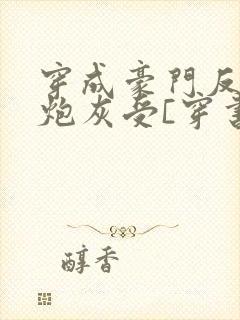 穿成豪門反
炮灰受[穿書
醇香